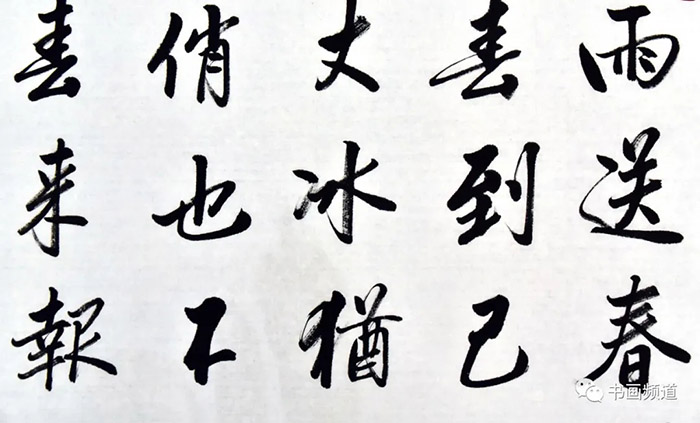 雨送春
春到已
丈冰猶
俏也不
春来報
书画频道